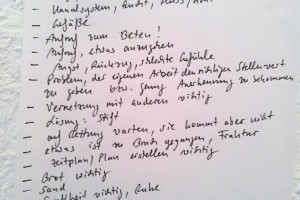 - Kanalsystem, feucht, Fluss,
- Gefäße
- Anfang zum Beten!
- Anfang, etwas anzugehen
- Angst, Rückzug, schlechte Gefühle
- Problem, der eigenen Arbeit den richtigen Stellenwert
zu geben bzw. genug Anerkennung zu bekommen
- Vernetzung mit anderen wichtig
- Lösung: Stift
- auf Rettung warten, sie kommt aber nicht
- etwas ist zu Bruch gegangen, Fraktur
- Zeitplan / Plan erstellen wichtig
- Brot wichtig
- Sand
- wichtig, Ruhe